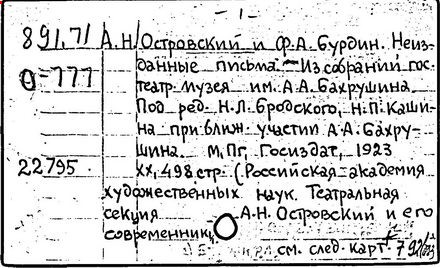 - 1 -
891.71 А.Н. Островский и Ф.А. Бурдин. Неиз-
О-777 данные письма. - Из собраний гос.
театр. музея им. А.А. Бахрушина.
Под ред. Н.Л. Бродского, Н.П. Каши-
на при ближ. участии А.А. Бахру-
шина. М., Пг, Госиздат, 1923
22795 XX, 498 стр. (Российская академия
художественных наук. Театральная
секция А.Н. Островский и его
современник
см. след. карт